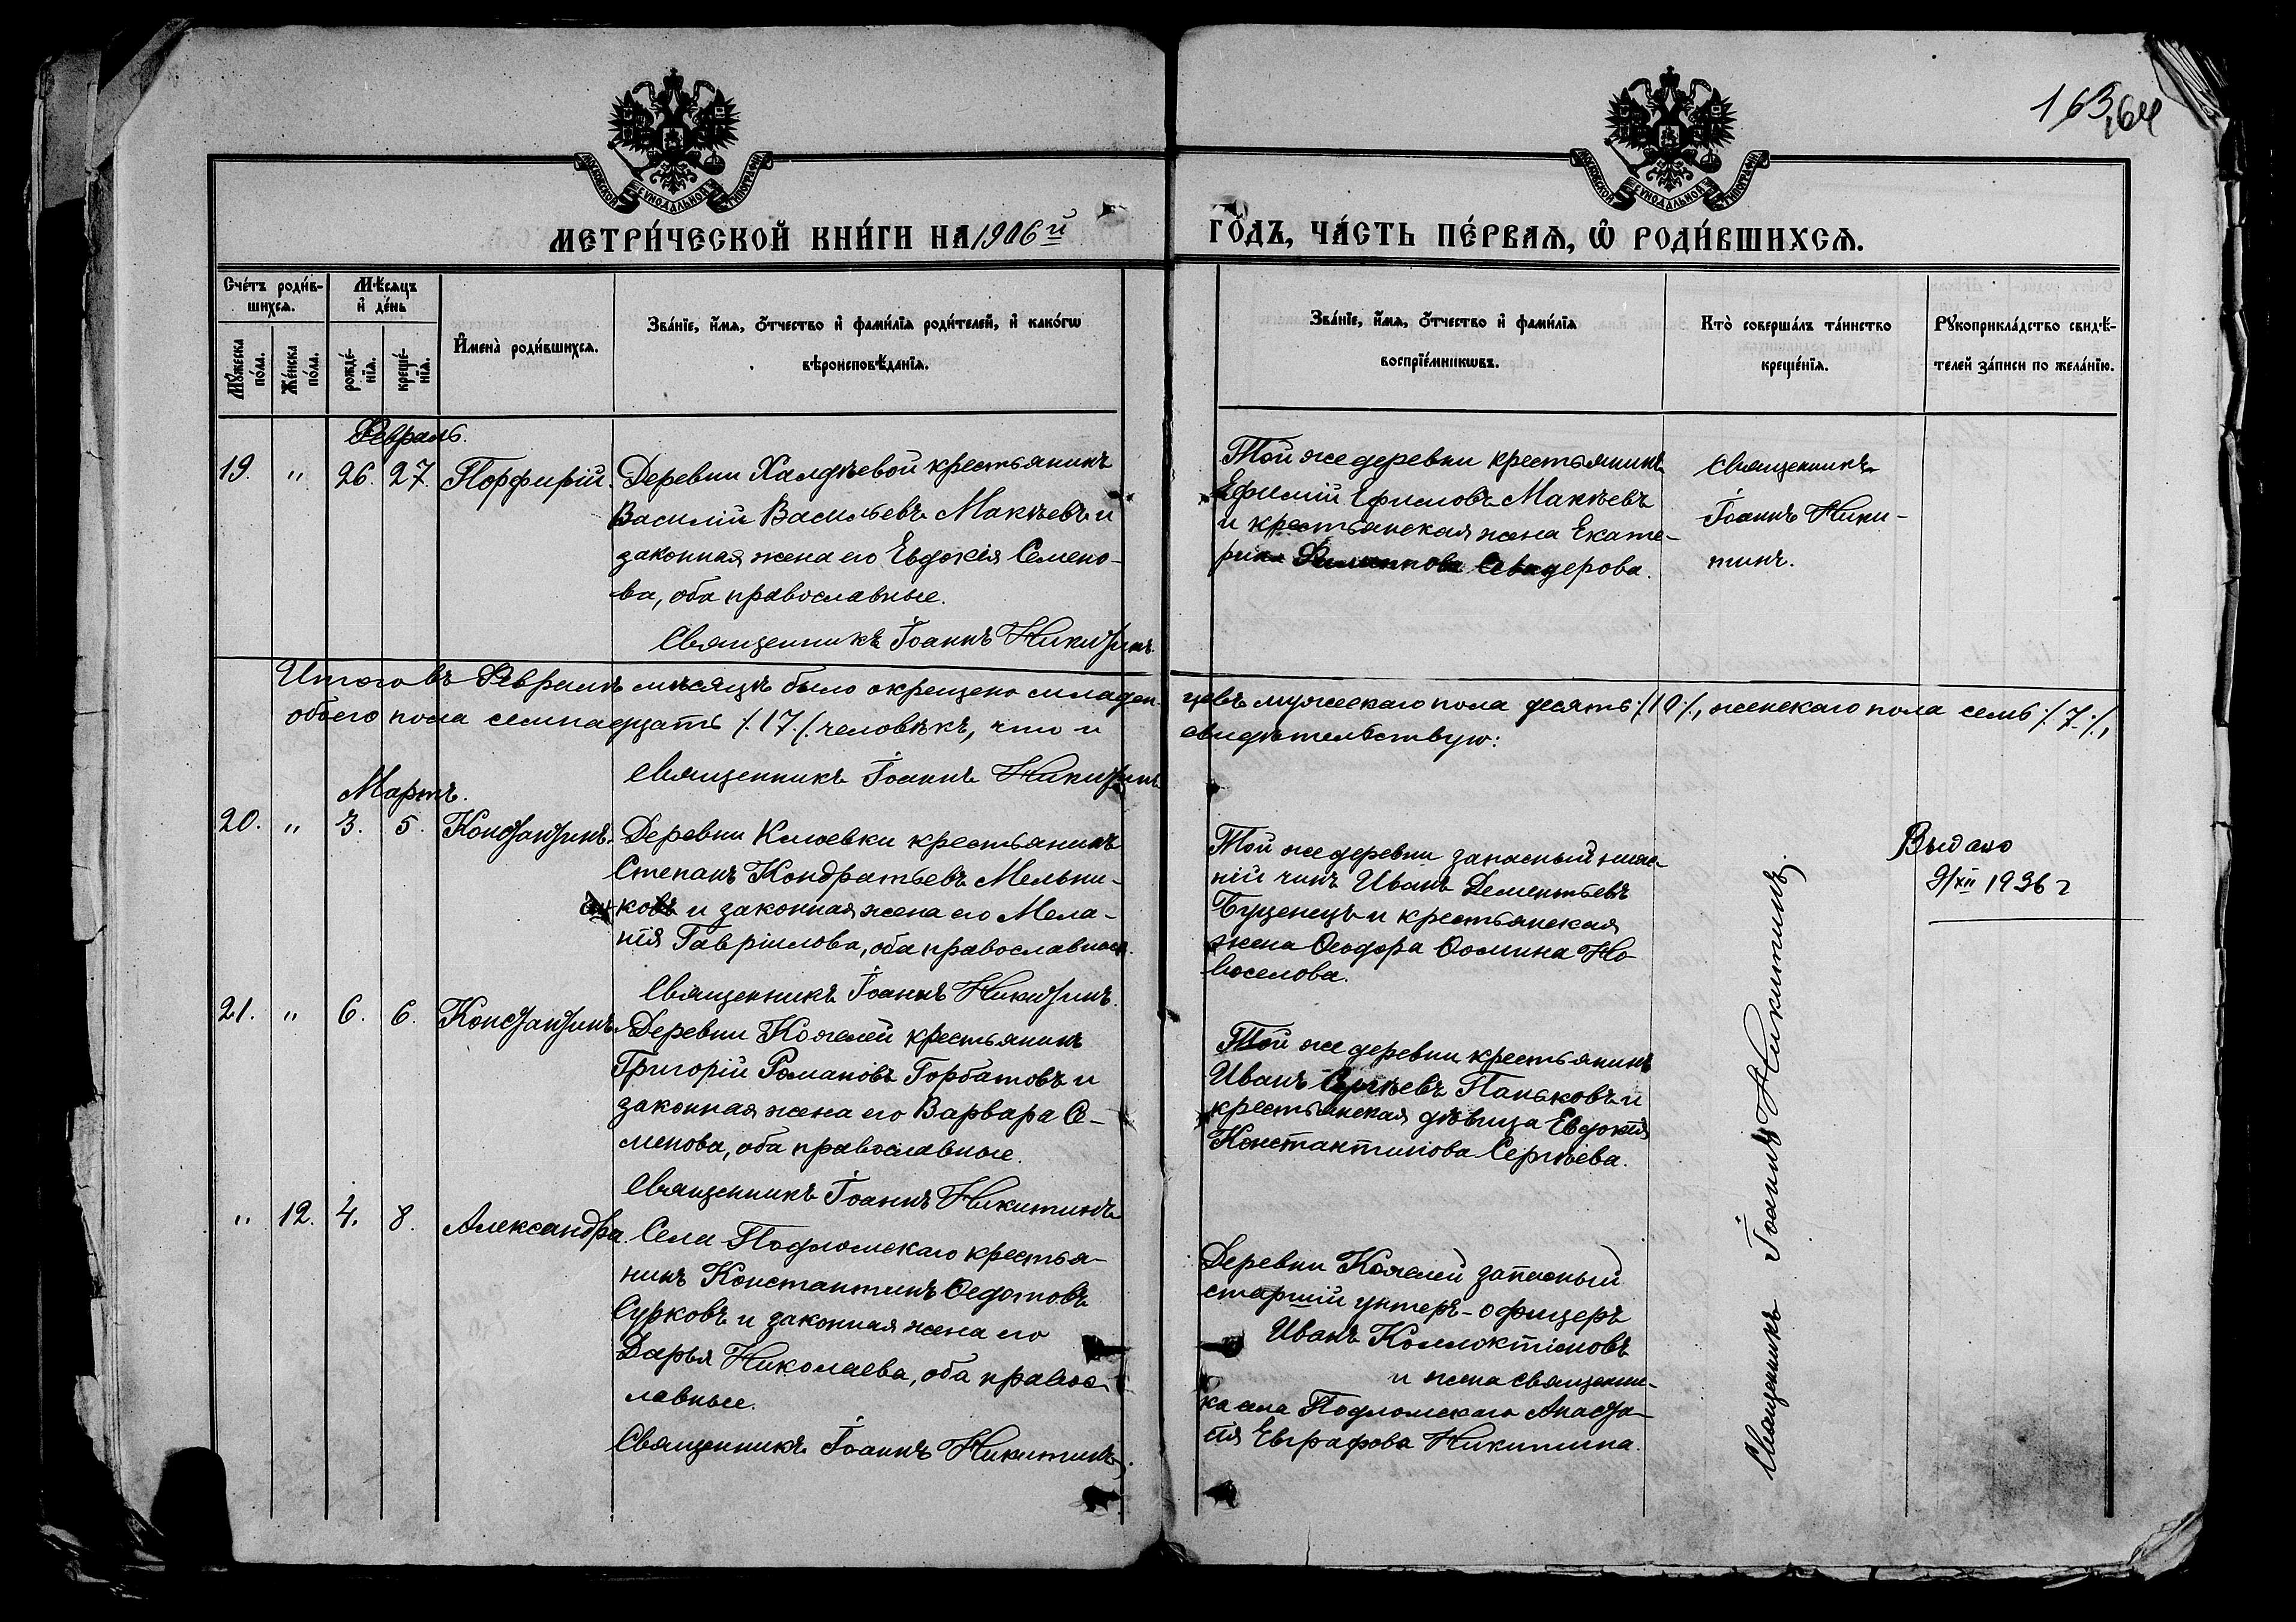 163 164
МОСКОВСКОЙ СѴНОДАЛЬНОЙ ТИПОГРАФІИ
МОСКОВСКОЙ СѴНОДАЛЬНОЙ ТИПОГРАФІИ
МЕТРИ́ЧЕСКОЙ КНИ́ГИ НА 1906й
ГО́ДЪ, ЧА́СТЬ ПЕ́РВАѦ, Ѡ РОДИ́ВШИХСѦ.
Сче́тъ роди́в-
шихсѧ.
Му́жеска по́ла.
Же́нска по́ла.
Мѣ́сѧцъ и де́нь
рожде́-нїѧ.
креще́-нїѧ.
Имена̀ роди́вшихсѧ.
Зва́нїе, и́мѧ, ѻ́тчество и фами́лїѧ роди́телей, и како́гѡ
вѣроисповѣ́данїѧ.
Зва́нїе, и́мѧ, ѻ́тчество и фами́лїѧ
воспрїе́мникѡвъ.
Кто̀ соверша́лъ та́инство
креще́нїѧ.
Рꙋкоприкла́дство свидѣ́-
телей за́писи по жела́нїю.
Февраль.
19. " 26. 27. Порфирій.
Деревни Халдѣевой крестьянинъ
Василій Васильевъ Макѣевъ и
законная жена его Евдокія Семено-
ва, оба православные.
Священникъ Іоаннъ Никитинъ
Той же деревни крестьянинъ
Ефимій Ефимовъ Макѣевъ
и крестьянская жена Екате-
рина Севидерова.
Священникъ
Іоаннъ Ники-
тинъ.
Итого въ Февралѣ мѣсяцѣ было окрещено младен
цевъ мужескаго пола десять ·/.10·/., женскаго пола семь ·/.7·/.,
обоего пола семнадцать /.17./. человѣкъ, что и
свидѣтельствую:
Священникъ Іоаннъ Никитинъ
Мартъ.
20. " 3. 5. Константинъ.
Деревни Килоевки крестьянинъ
Степанъ Кондратьевъ Мельни-
ковъ и законная жена его Мела-
нія Гавріилова, оба православные.
Священникъ Іоаннъ Никитинъ.
Той же деревни запасный ниж-
ній чинъ Иванъ Дементьевъ
Буценецъ и крестьянская
жена Ѳеодора Ѳомина Но-
воселова.
Выдано
9/XII 1936 г
21. " 6. 6. Константинъ.
Деревни Кожелей крестьянинъ
Григорій Романовъ Горбатовъ и
законная жена его Варвара Се-
менова, оба православные.
Священникъ Іоаннъ Никитинъ
Той же деревни крестьянинъ
Иванъ Сергѣевъ Паньковъ и
крестьянская дѣвица Евдокія
Константинова Сергѣева.
" 12. 4. 8. Александра.
Села Подломскаго крестья-
нинъ Константинъ Ѳедотовъ
Сурковъ и законная жена его
Дарья Николаева, оба правос-
лавные.
Священникъ Іоаннъ Никитинъ.
Деревни Кожелей запасный
старшій унтеръ-офицеръ
Иванъ
и жена священни-
ка села Подломскаго Анаста-
сія Евграфова Никитина.
Священникъ Іоаннъ Никитинъ.